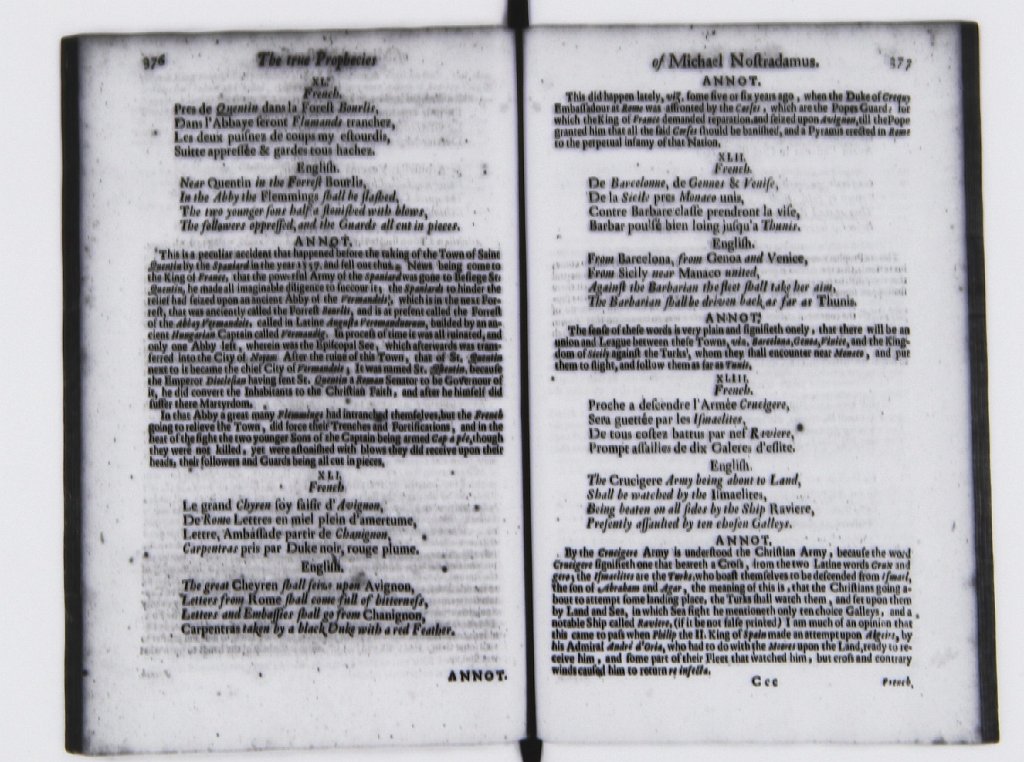 376 The true Prophecies
XL.
French.
Pres de Quentin dans la Forest Bourlis,
Dans l'Abbaye seront Flamands tranchez,
Les deux puisnez de coups my estourdis,
Suitte appressée & gardes tous hachez.
English.
Near Quentin in the Forrest Bourlis,
In the Abby the Flemmings shall be slashed,
The two younger sons half a stonished with blows,
The followers oppressed, and the Guards all cut in pieces.
ANNOT.
This is a peculiar accident that happened before the taking of the Town of Saint
Quentin by the Spaniard in the year 1557. and fell out thus, News being come to
the King of France, that the powerful Army of the Spaniard was gone to Besiege St.
Quentin, he made all imaginable diligence to succour it, the Spaniards to hinder the
relief had seized upon an ancient Abby of the Vermandois, which is in the next For-
rest, that was anciently called the Forrest Bourlis, and is at present called the Forrest
of the Abbay Vermandois, called in Latine Augusta Veromanduorum, builded by an an-
cient Hungarian Captain called Vermandig. In process of time it was all ruinated, and
only one Abby left, wherein was the Episcopal See, which afterwards was trans-
ferred into the City of Noyon. After the ruine of this Town, that of St. Quentin
next to it became the chief City of Vermandois, It was named St. Quentin, because
the Emperor Dioclesian having sent St. Quentin a Roman Senator to be Governour of
it, he did convert the Inhabitants to the Christian Faith, and after he himself did
suffer there Martyrdom.
In that Abby a great many Flemmings had intranched themselves, but the French
going to relieve the Town, did force their Trenches and Fortifications, and in the
heat of the fight the two younger Sons of the Captain being armed Cap a pie, though
they were not killed, yet were astonished with blows they did receive upon their
heads, their followers and Guards being all cut in pieces.
XLI.
French.
Le grand Chyren soy saisir d'Avignon,
De Rome Lettres en miel plein d'amertume,
Lettre, Ambassade partir de Chanignon,
Carpentras pris par Duke noir, rouge plume.
English.
The great Cheyren shall seize upon Avignon,
Letters from Rome shall come full of bitterness,
Letters and Embassies shall go from Chanignon,
Carpentras taken by a black Duke with a red Feather.
ANNOT.
of Michael Nostradamus. 377
ANNOT.
This did happen lately, viz. some five or six years ago, when the Duke of Crequy
Embassadour at Rome was affronted by the Corses, which are the Popes Guard; for
which the King of France demanded reparation, and seized upon Avignon, till the Pope
granted him that all the said Corses should be banished, and a Pyramis erected in Rome
to the perpetual infamy of that Nation.
XLII.
French.
De Barcelonne, de Gennes & Venise,
De la Sicile pres Monaco unis,
Contre Barbare classe prendront la vise,
Barbar poulsé bien loing jusqu'a Thunis.
English.
From Barcelona, from Genoa and Venice,
From Sicily near Manaco united,
Against the Barbarian the fleet shall take her aim,
The Barbarian shall be driven back as far as Thunis.
ANNOT.
The sense of these words is very plain and signifieth onely, that there will be an
union and League between these Towns, viz. Barcelona, Genoa, Venice, and the King-
dom of Sicily against the Turks, whom they shall encounter near Monaco, and put
them to flight, and follow them as far as Tunis.
XLIII.
French.
Proche a descendre l'Armée Crucigere,
Sera guettée par les Ismaelites,
De tous costez battus par nef Raviere,
Prompt assaillies de dix Galeres d'eslite.
English.
The Crucigere Army being about to Land,
Shall be watched by the Ismaelites,
Being beaten on all sides by the Ship Raviere,
Presently assaulted by ten chosen Galleys.
ANNOT.
By the Crucigere Army is understood the Christian Army, because the word
Crucigere signifieth one that beareth a Cross, from the two Latine words Crux and
gero, the Ismaelites are the Turks, who boast themselves to be descended from Ismael,
the son of Abraham and Agar, the meaning of this is, that the Christians going a-
bout to attempt some landing place, the Turks shall watch them, and set upon them
by Land and Sea, in which Sea fight he mentioneth only ten choice Galleys, and a
notable Ship called Raviere, (if it be not false printed) I am much of an opinion that
this came to pass when Philip the II. King of Spain made an attempt upon Algeirs, by
his Admiral André d'Oria, who had to do with the Moores upon the Land, ready to re-
ceive him, and some part of their Fleet that watched him, but cross and contrary
winds caused him to return re infecta.
Ccc French.